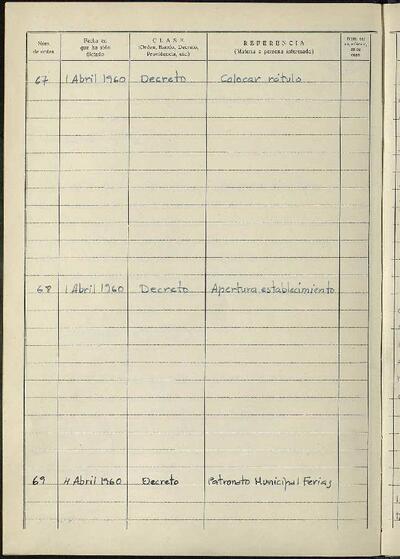 Núm. de orden
Fecha en que ha sido dictado
CLASE
(Orden, Bando, Decreto, Providencia, etc.)
REFERENCIA
(Materia o persona interesada)
67 1 Abril 1960 Decreto Colocar rótulo
68 1 Abril 1960 Decreto Apertura establecimiento
69 4 Abril 1960 Decreto Patronato Municipal Ferias